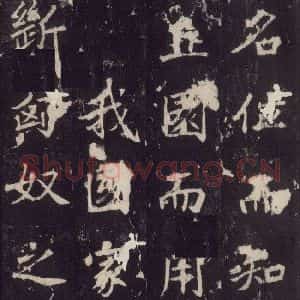 名而知
國而用
我國家
斷匈奴之
Shufawang.CN